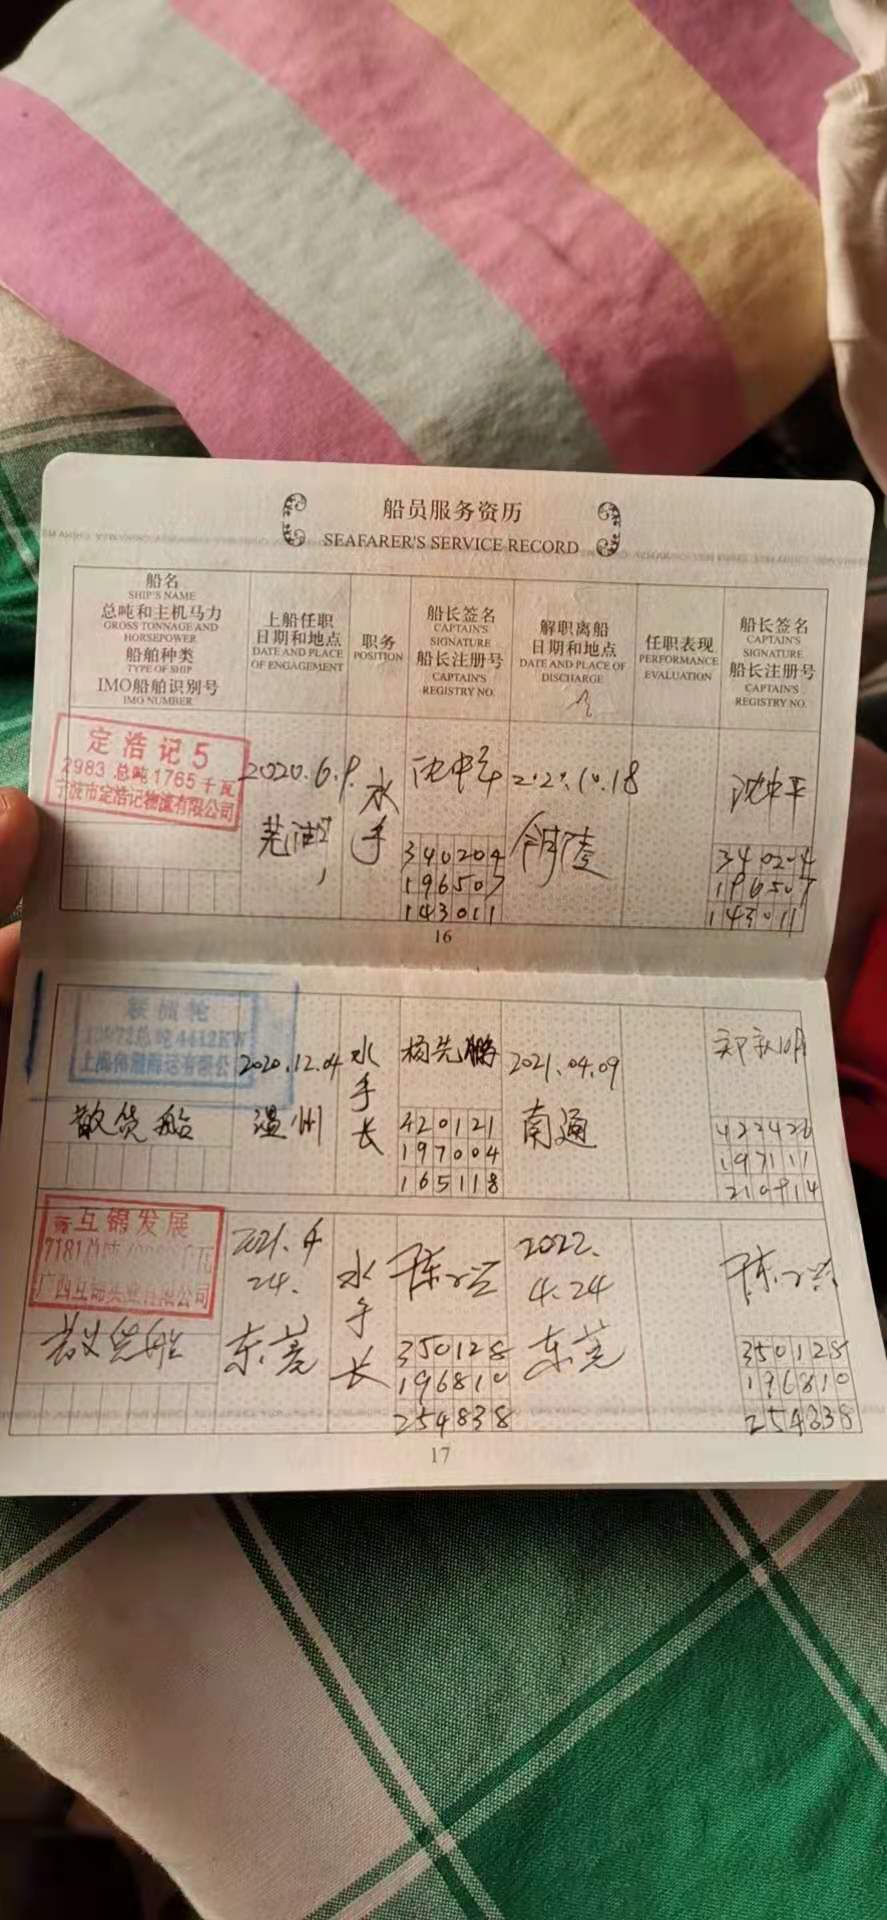 船员服务资历
SEAFARER'S SERVICE RECORD
船名
SHIP'S NAME
总吨和主机马力
GROSS TONNAGE AND
HORSEPOWER
船舶种类
TYPE OF SHIP
IMO船舶识别号
IMO NUMBER
上船任职
日期和地点
DATE AND PLACE
OF ENGAGEMENT
职务
POSITION
船长签名
CAPTAIN'S
SIGNATURE
船长注册号
CAPTAIN'S
REGISTRY NO.
解职离船
日期和地点
DATE AND PLACE OF
DISCHARGE
任职表现
PERFORMANCE
EVALUATION
船长签名
CAPTAIN'S
SIGNATURE
船长注册号
CAPTAIN'S
REGISTRY NO.
定浩记5
2983总吨1765千瓦
宁波市定浩记物流有限公司
2020.6.9.
芜湖
水
手
沈中平
340204
196507
143011
10.18
铜陵
沈中平
340204
196507
143011
16
总吨4412KW
散货船
2020.12.04
温州
水
手
长
杨先鹏
420121
197004
165118
2021.04.09
南通
17
互锦发展
7181总吨
广西互锦实业有限公司
散货船
2021.4
24.
东莞
水
手
长
350128
196810
254838
2022.
4.24
东莞
350128
196810
254838